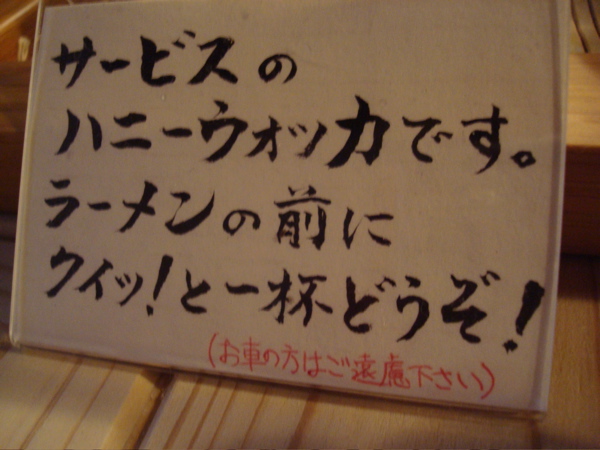 サービスの
ハニーウォッカです。
ラーメンの前に
クイッ!と一杯どうぞ!
(お車の方はご遠慮下さい)